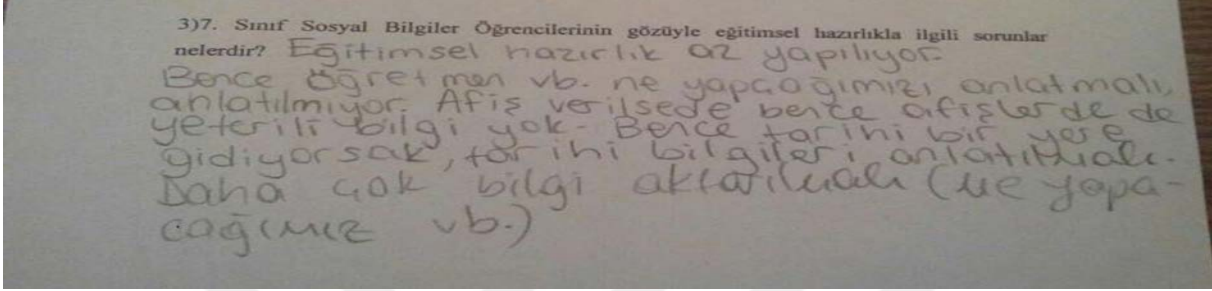 3)7. Sınıf Sosyal Bilgiler Öğrencilerinin gözüyle eğitimsel hazırlıkla ilgili sorunlar
nelerdir? Eğitimsel hazırlık az yapılıyor.
Bence öğretmen vb. ne yapcağımızı anlatmalı,
anlatılmıyor. Afiş verilsede bence afişlerde de
yeterili bilgi yok. Bence tarihi bir yere
gidiyorsak, tarihi bilgileri anlatılmalı.
Daha çok bilgi aktarılmalı (ne yapa-
cağımız vb.)